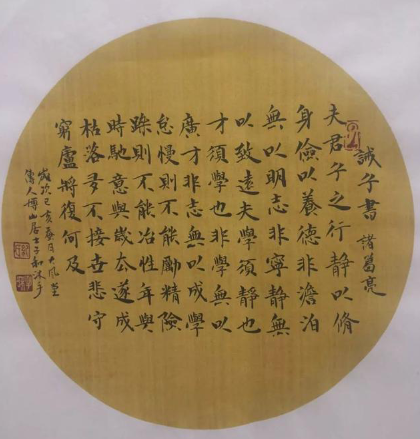 誡子書 諸葛亮
夫君子之行静以脩
身儉以養德非澹泊
無以明志非寧静無
以致遠夫學須静也
才須學也非學無以
廣才非志無以成學
怠慢則不能勵精險
躁則不能冶性年與
時馳意與歲去遂成
枯落多不接世悲守
窮廬將復何及
歲次己亥月大風堂
傳人博山居士和沐手